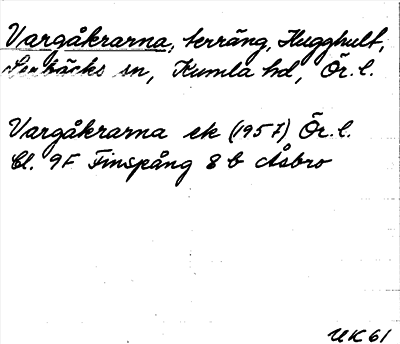 Vargåkrarna, terräng, Hugghult,
Lerbäcks sn, Kumla hd, Ör. l.
Vargåkrarna ek (1957) Ör. l.
bl. 9F Finspång 8 b Åsbro
UK 61